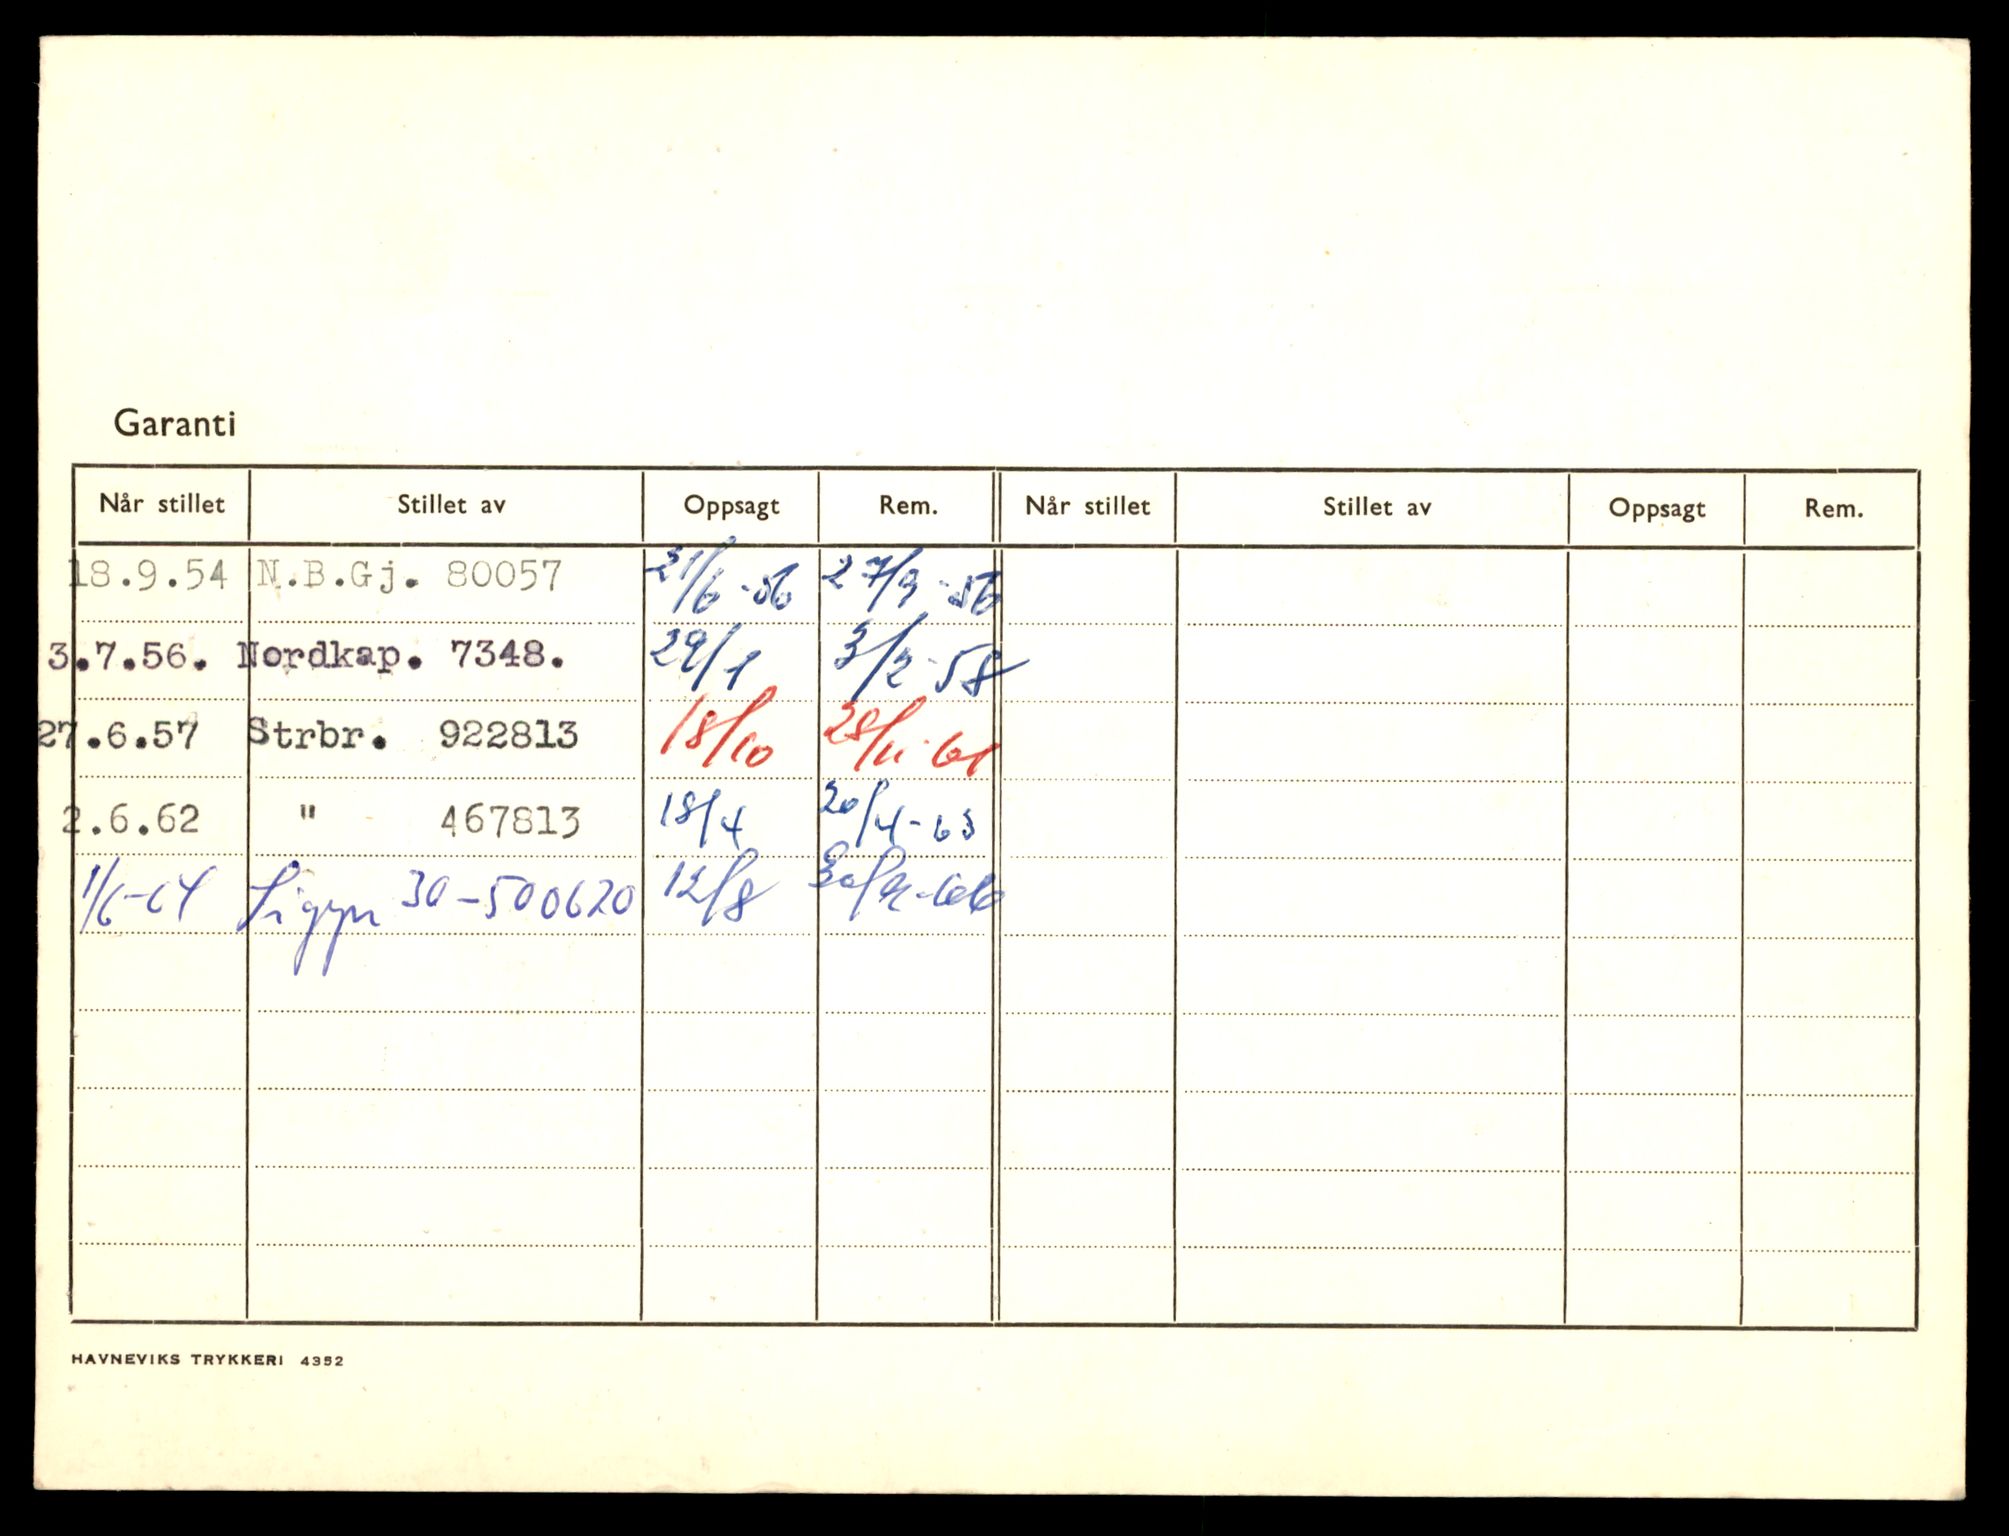 Garanti
Når stillet Stillet av Oppsagt Rem. Når stillet Stillet av Oppsagt Rem.
18.9.54 N.B.Gj. 80057 21/6-56 27/9-56
3.7.56. Nordkap. 7348. 29/1 3/2-58
27.6.57 Strbr. 922813 18/10 28/11-61
2.6.62 " 467813 18/4 20/4-63
1/6-64 Sigyn 30-500620 12/8 30/-66
HAVNEVIKS TRYKKERI 4352